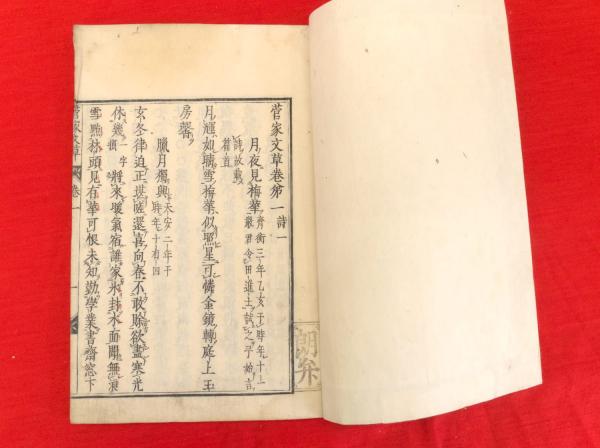 菅家文草卷第一 詩一
月夜見梅華 齊衡三年乙亥于時年十一
嚴君令田進士試之予始言
詩故載
篇首
月輝如晴雪梅華似照星可憐金鏡轉庭上玉
房馨
臘月獨興 于時年十有四
玄冬律迫正堪嗟還喜向春不敢賖欲盡寒光
休幾一字損 將來暖氣宿誰家氷封水面聞無浪
雪點林頭見有華可恨未知勤學業書齋窓下
菅家文草 卷一 一